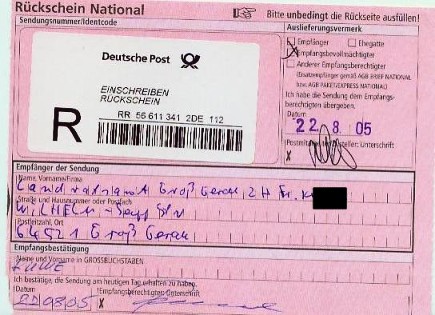 Rückschein National
Bitte unbedingt die Rückseite ausfüllen!
Sendungsnummer/Identcode
Deutsche Post
EINSCHREIBEN
RÜCKSCHEIN
R
RR 56 611 341 2DE 112
Auslieferungsvermerk
Empfänger Ehegatte
Empfangsbevollmächtigter
Anderer Empfangsberechtigter
(Ersatzempfänger gemäß AGB BRIEF NATIONAL
bzw. AGB PAKET/EXPRESS NATIONAL)
Ich habe die Sendung dem Empfangs-
berechtigten übergeben.
Datum
22 8 05
Unterschrift
X
Empfänger der Sendung
Name, Vorname/Firma
Landratsamt Groß Gerau, z H Fr. K
Straße und Hausnummer oder Postfach
Wilhelm-
Postleitzahl, Ort
64521 Groß Gerau
Empfangsbestätigung
Name und Vorname in GROSSBUCHSTABEN
Ich bestätige, die Sendung am heutigen Tag erhalten zu haben.
Datum Empfangsberechtigter: Unterschrift
X